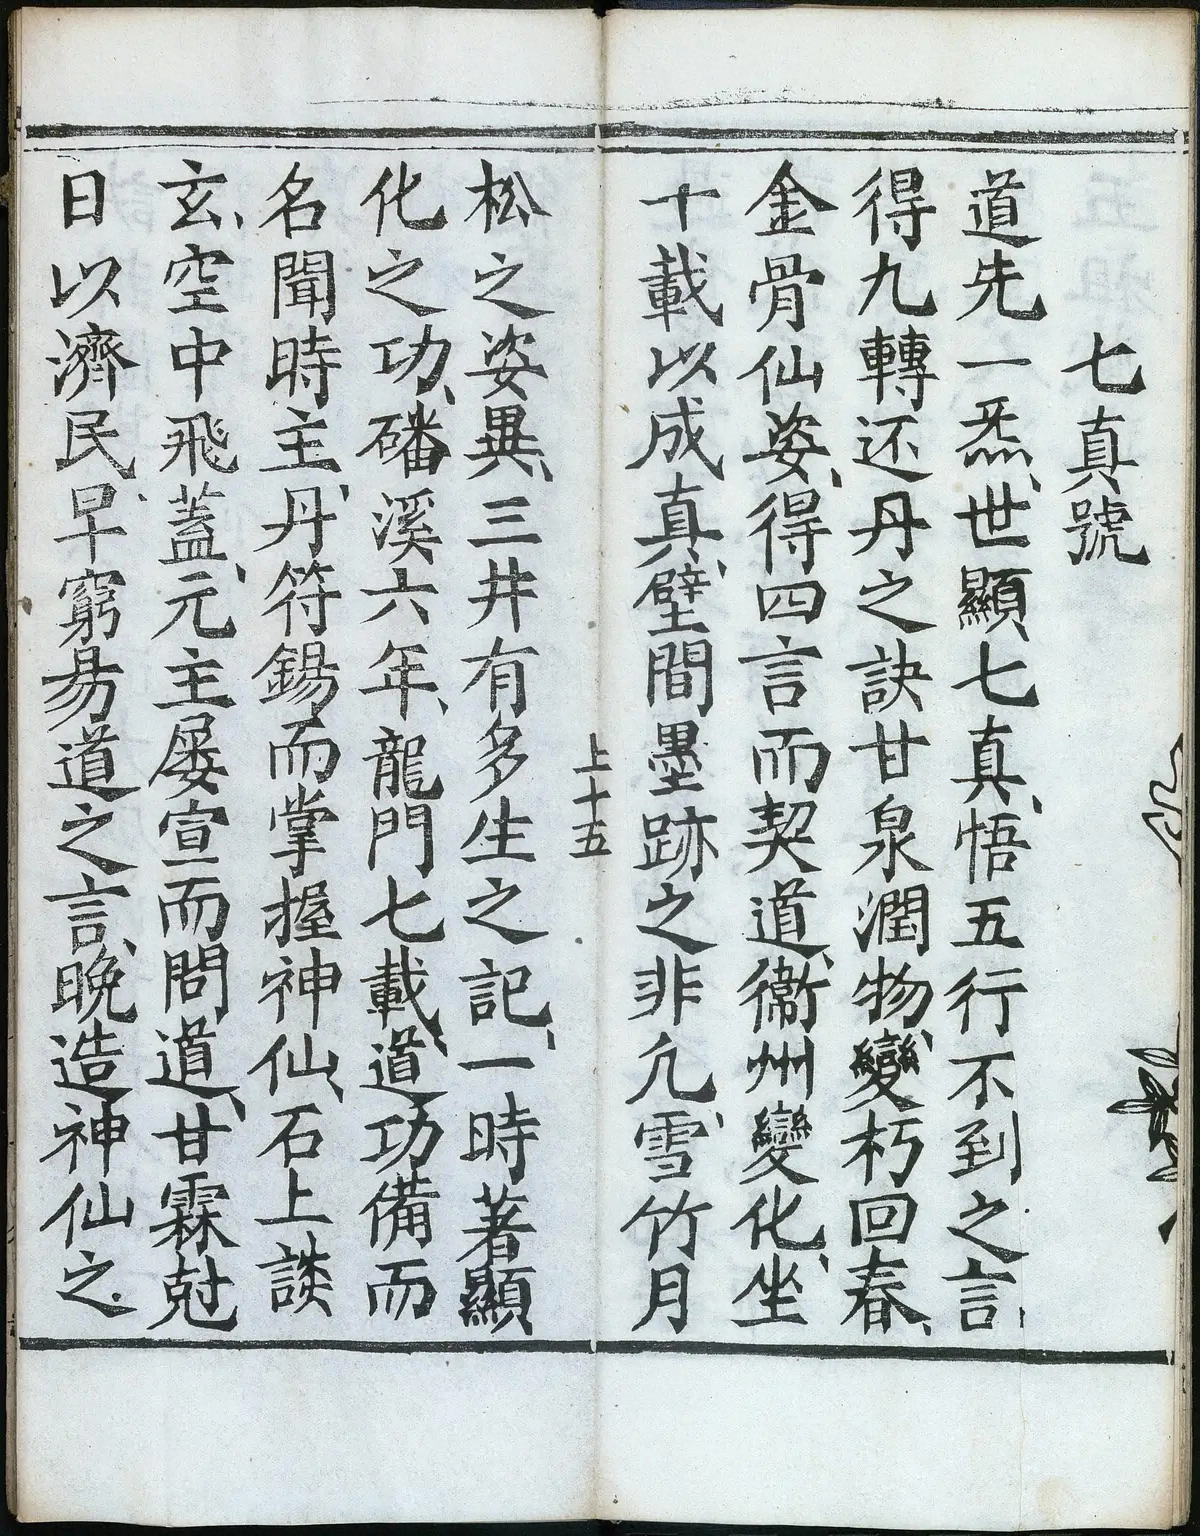 七真號
道先一炁、世顯七真、悟五行不到之言、
得九轉还丹之訣甘泉潤物、變朽回春、
金骨仙姿、得四言而契道、衞州變化、坐
十載以成真、壁間墨跡之非凢、雪竹月
上十五
松之姿異、三井有多生之記、一時著顯
化之功、磻溪六年、龍門七載、道功備而
名聞時主、丹符錫而掌握神仙、石上談
玄、空中飛蓋、元主屡宣而問道、甘霖尅
日以濟民、早窮易道之言、晚造神仙之